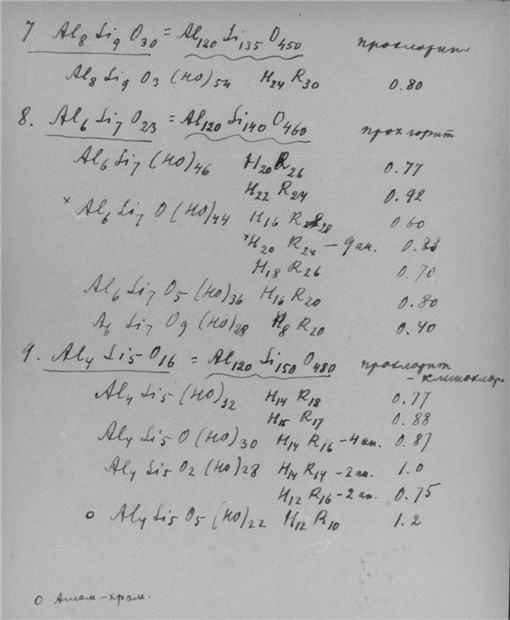 7. Al8 Si9 O30 = Al120 Si135 O450 прохлорит
Al8 Si9 O3 (HO)54 H24 R30 0.80
8. Al6 Si7 O23 = Al120 Si140 O460 прохлорит
Al6 Si7 (HO)46 H20 R26 0.77
H22 R24 0.92
x Al6 Si7 O (HO)44 H16 R28 0.60
x H20 R24 - 9 ан. 0.83
H18 R26 0.70
Al6 Si7 O5 (HO)36 H16 R20 0.80
A6 Si7 O9 (HO)28 H8 R20 0.40
9. Al4 Si5 O16 = Al120 Si150 O480 прохлорит
- клинохлор
Al4 Si5 (HO)32 H14 R18 0.77
H15 R17 0.88
Al4 Si5 O (HO)30 H14 R16 - 4 ан. 0.87
Al4 Si5 O2 (HO)28 H14 R14 - 2 ан. 1.0
H12 R16 - 2 ан. 0.75
o Al4 Si5 O5 (HO)22 H12 R10 1.2
o